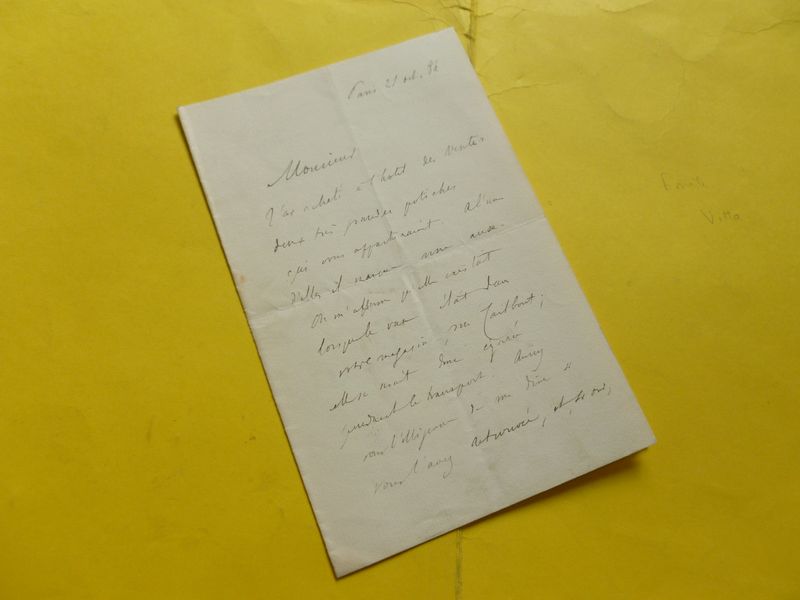 Paris 21 oct. 82
Monsieur
J'ai acheté à l'hotel des ventes
deux très grandes potiches
qui vous appartenaient. A l'une
d'elles il manque une anse.
On m'affirme qu'elle existait
lorsque le vase était dans
votre magasin, rue Taitbout;
elle se serait donc égarée
pendant le transport. Auriez
vous l'obligeance de me dire si
vous l'avez retrouvée, et, si oui,
Emile
Villa